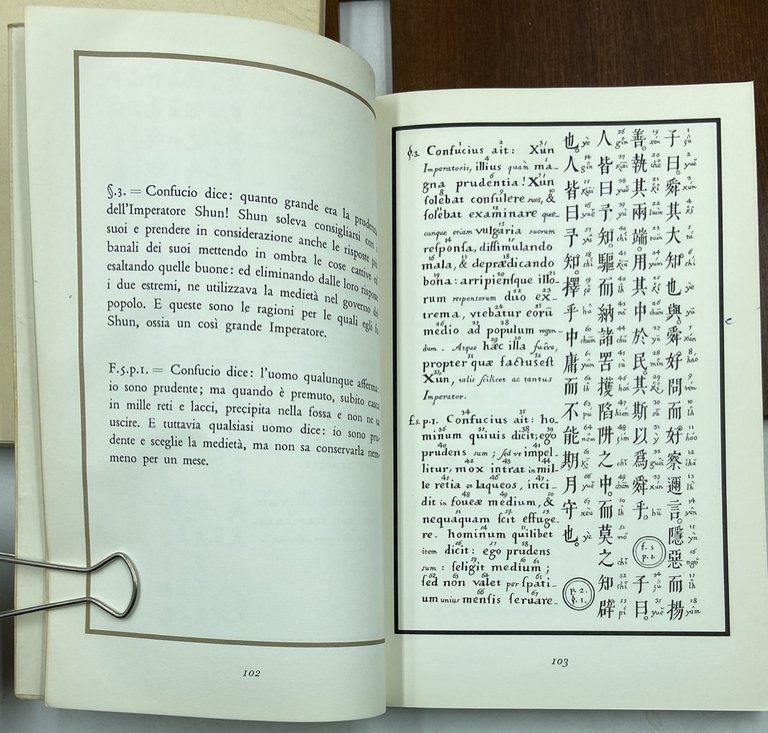 §.3. = Confucio dice: quanto grande era la prudenza
dell'Imperatore Shun! Shun soleva consigliarsi con i
suoi e prendere in considerazione anche le risposte più
banali dei suoi mettendo in ombra le cose cattive ed
esaltando quelle buone: ed eliminando dalle loro risposte
i due estremi, ne utilizzava la medietà nel governo del
popolo. E queste sono le ragioni per le quali egli fu
Shun, ossia un così grande Imperatore.
F.5.p.1. = Confucio dice: l'uomo qualunque afferma:
io sono prudente; ma quando è premuto, subito casca
in mille reti e lacci, precipita nella fossa e non ne sa
uscire. E tuttavia qualsiasi uomo dice: io sono pru-
dente e sceglie la medietà, ma non sa conservarla nem-
meno per un mese.
102
§.3. Confucius ait: Xun
Imperatoris, illius quàm ma-
gna prudentia! Xun
solebat consulere suos, &
solebat examinare quæ-
cunque etiam vulgaria suorum
responsa, dissimulando
mala, & deprædicando
bona: arripiensque illo-
rum responsorum duo ex-
trema, vtebatur eorũ
medio ad populum regen-
dum. Atque hæc illa fuêre,
propter quæ factus est
Xun, talis scilicet ac tantus
Imperator.
f.5. p.1. Confucius ait: ho-
minum quiuis dicit; ego
prudens sum; sed vt impel-
litur, mox intrat in mil-
le retia et laqueos, inci-
dit in foueæ medium, &
nequaquam scit effuge-
re. hominum quilibet
item dicit: ego prudens
sum: seligit medium;
sed non valet per spati-
um unius mensis seruare.
子曰舜其大知也與舜好問而好察邇言。隱惡而揚
善。執其兩端。用其中於民。其斯以爲舜乎。 f. 5 p. 1. 子曰。
人皆曰予知驅而納諸罟擭陷阱之中。而莫之知辟
也。人皆曰予知擇乎中庸而不能期月守也。
p. 2. §. 1.
103